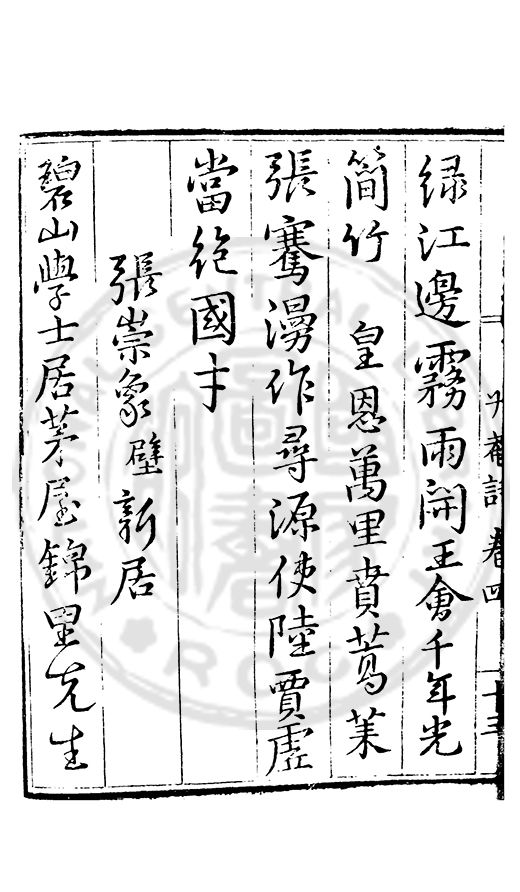 升菴詩卷四 十三
緑江邊霧雨開王會千年光
簡竹 皇恩萬里賁蒿莱
張騫漫作尋源使陸賈虛
當絶國才
張崇象壁新居
碧山學士居茅屋錦里先生